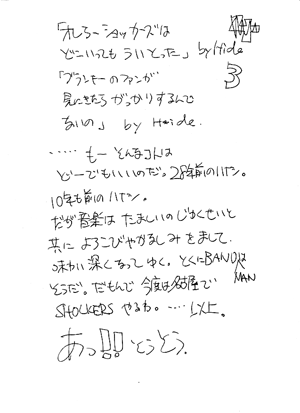 「オレらーショッカーズは
どこいっても ういとった」 by Hide
「ブランキーのファンが 3
見にきたら がっかりするんで
ないの」 by Heide.
‥‥‥ もー そんなこんは
どーでもいいのだ。28年前のハナシ。
10年も前のハナシ。
だが音楽は たましいのじゅくせいと
共に よろこびやかなしみをまして
味わい深くなって ゆく。とくにBANDは
MAN
そうだ。だもんで 今度は名古屋で
SHOCKERS やるわ。‥‥以上。
あっ!! とうとう.